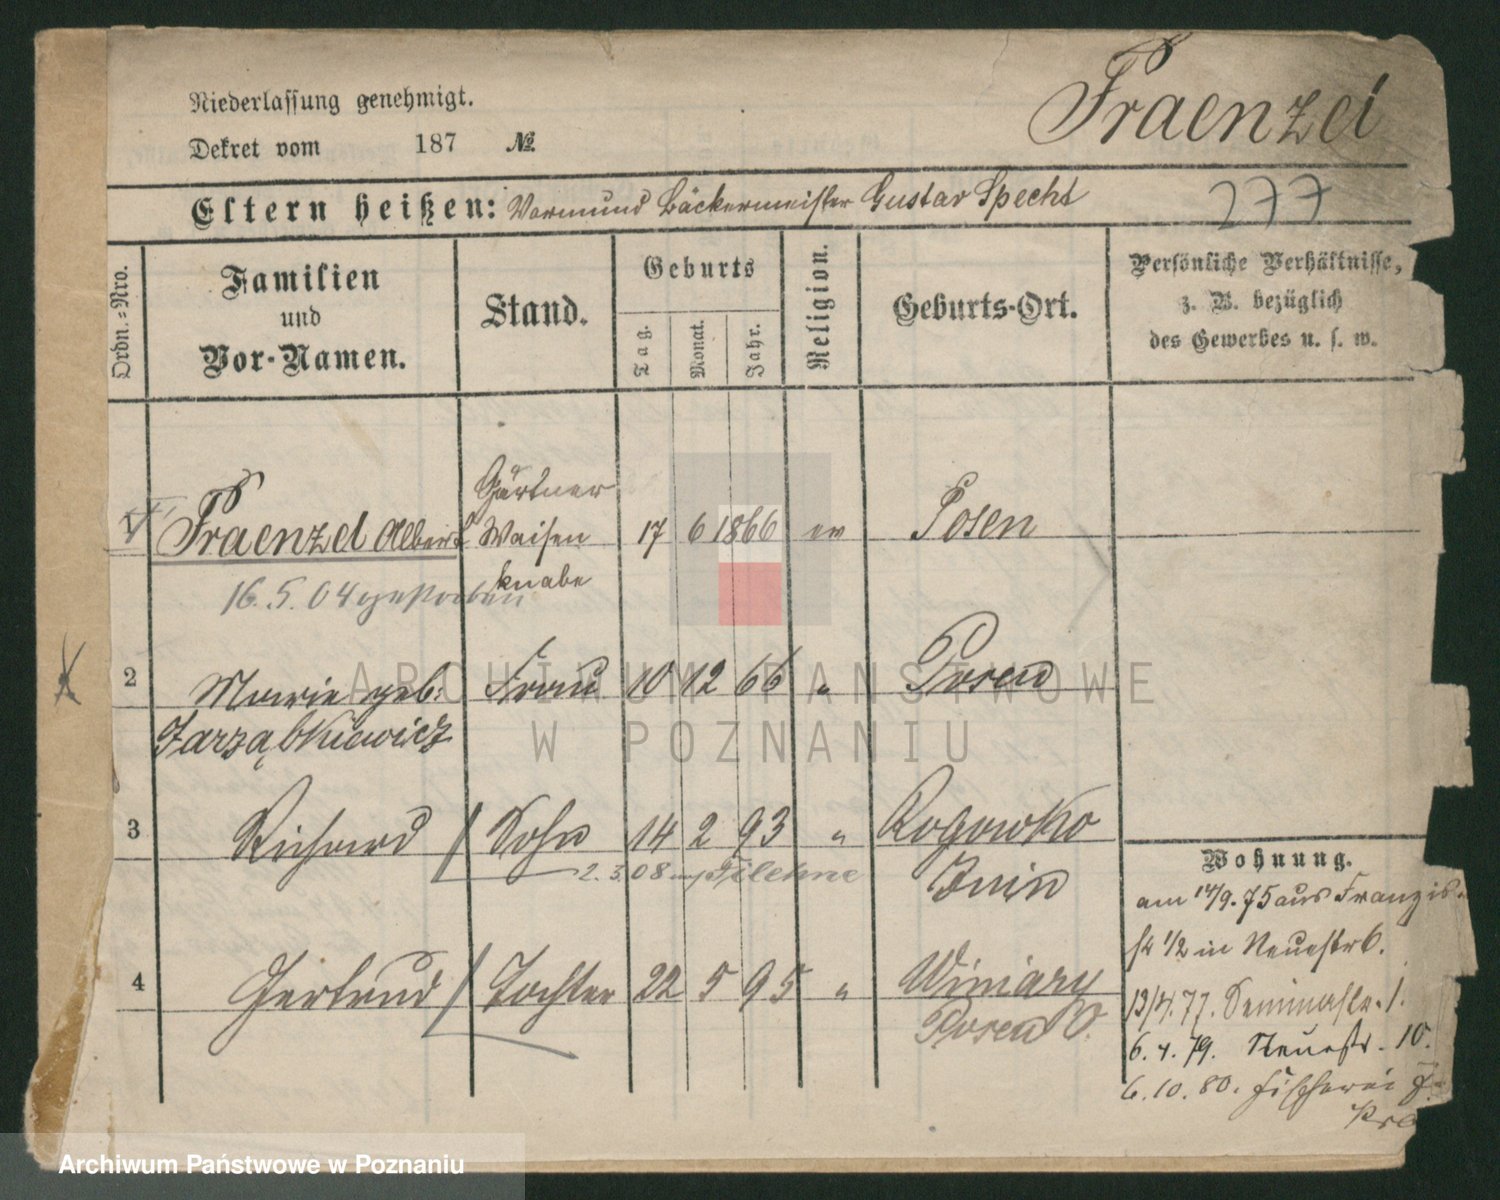 Niederlassung genehmigt.
Dekret vom 187 №
Fraenzel
Eltern heißen: Vormund Bäckermeister Gustav Specht
277
Ordn.-Nro.
Familien
und
Vor-Namen.
Stand.
Geburts
Tag.
Monat.
Jahr.
Religion.
Geburts-Ort.
Persönliche Verhältnisse,
z. B. bezüglich
des Gewerbes u. s. w.
Gärtner
Fraenzel Albert Waisen 17 6 1866 ev Posen
knabe
16.5.04 gestorben
2 Marie geb: Frau 10 12 66 " Posen
Zarząbkiewicz
3 Richard Sohn 14 2 93 " Rogowko
2.3.08 Filehne Znin
4 Gertrud Tochter 22 5 95 " Winiary
Posen O.
Wohnung.
am 14/9.75 aus Franzis
14 1/2 in Neuestr 6.
13/4.77. Seminarstr. 1.
6.4.79. Neuestr. 10.
6.10.80. Fischerei
ARCHIWUM PAŃSTWOWE
W POZNANIU
Archiwum Państwowe w Poznaniu